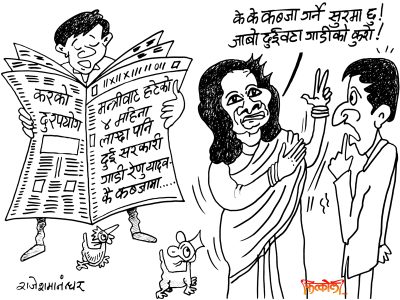 के के कब्जा गर्ने सुरमा छु!
जाबो दुईवटा गाडीको कुरो!
करको
दुरुपयोग
मन्त्रीबाट हटेको
४ महिना
लाग्दा पनि
दुई सरकारी
गाडी रेणु यादव-
कै कब्जामा.....
राजेश मानन्धर